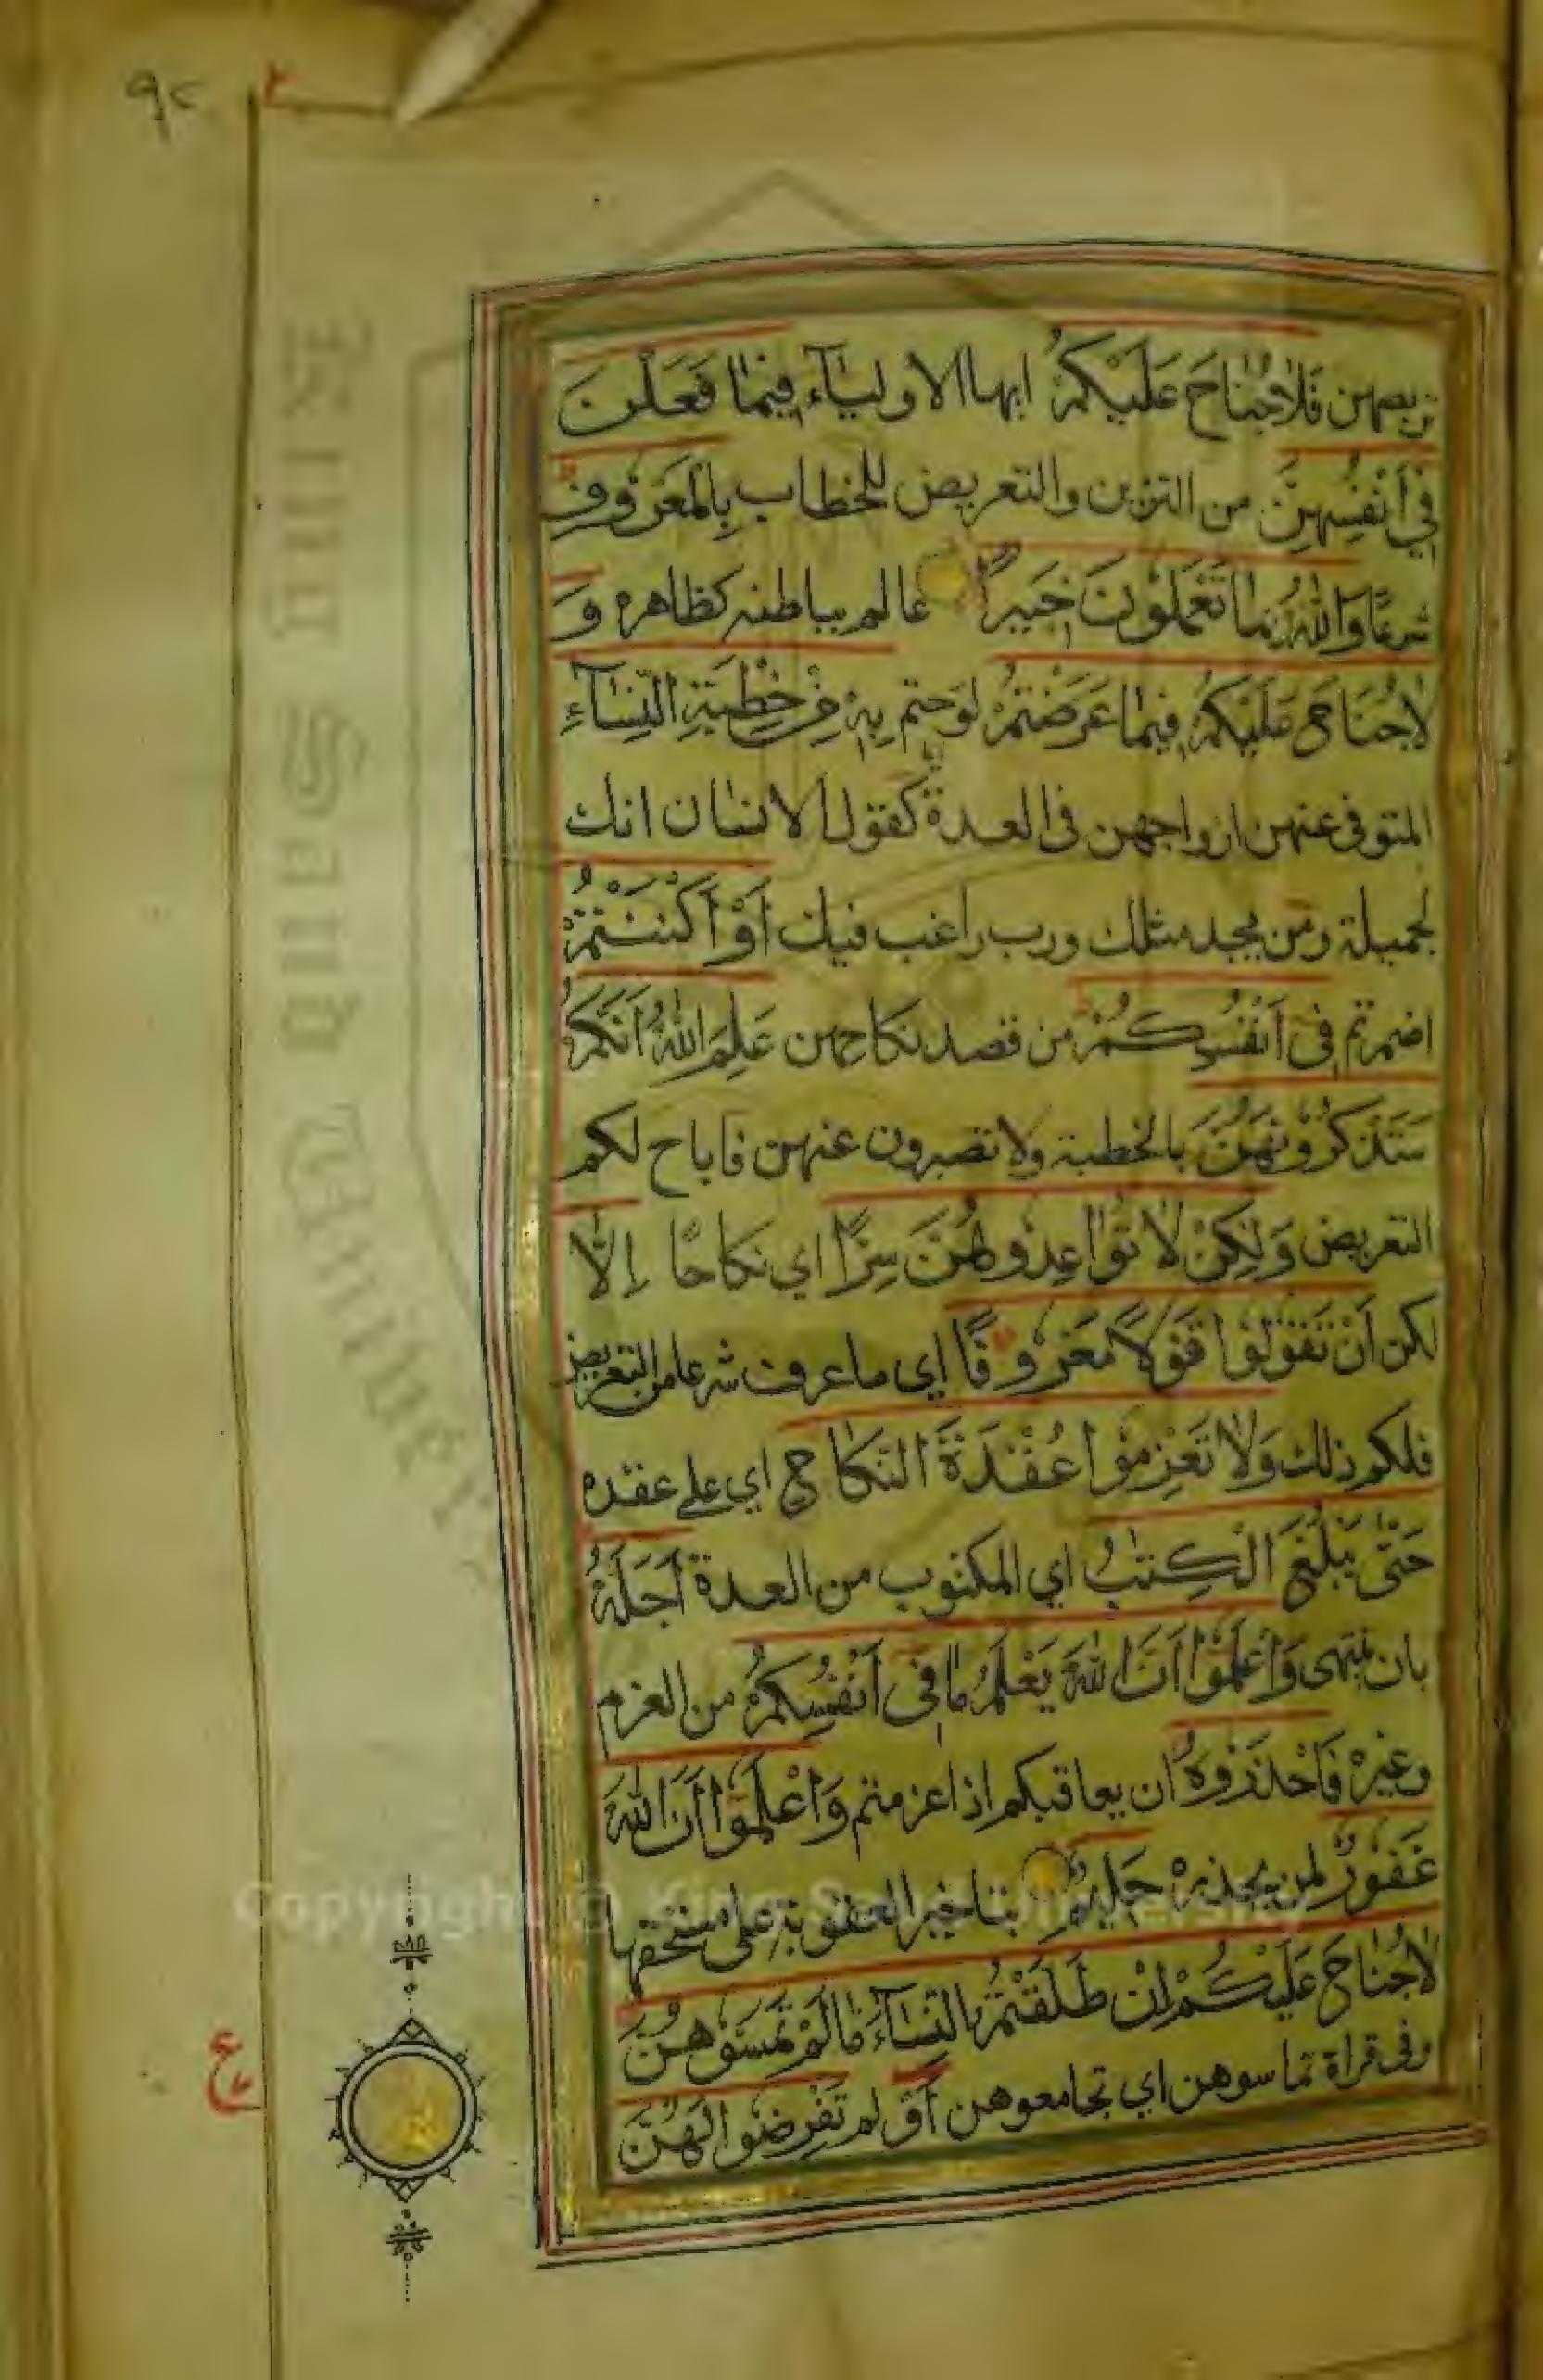 ٩٢
٢
تربصهن فَلَا جُنَاحَ عَلَيْكُمْ ايها الاولياء فِيمَا فَعَلْنَ
فِي أَنْفُسِهِنَّ من التزين والتعريض للخطاب بِالْمَعْرُوفِ
شرعًا وَاللهُ بِمَا تَعْمَلُونَ خَبِيرٌ عالم بباطنه كظاهره وَ
لَا جُنَاحَ عَلَيْكُمْ فِيمَا عَرَّضْتُمْ لوحتم بِهِ مِنْ خِطْبَةِ النِّسَآءِ
المتوفى عنهن ازواجهن فى العدة كقول الانسان انك
لجميلة ومن يجد مثلك ورب راغب فيك أَوْ أَكْنَنْتُمْ
اضمرتم فِى أَنْفُسِكُمْ من قصد نكاحهن عَلِمَ اللهُ أَنَّكُمْ
سَتَذْكُرُونَهُنَّ بالخطبة ولا تصبرون عنهن فاباح لكم
التعريض وَلَكِنْ لَا تُوَاعِدُوهُنَّ سِرًّا اي نكاحًا إِلَّا
لكن أَنْ تَقُولُوا قَوْلًا مَعْرُوفًا اي ما عرف شرعا من التعريض
فلكم ذلك وَلَا تَعْزِمُوا عُقْدَةَ النِّكَاحِ اي على عقده
حَتَّى يَبْلُغَ الْكِتَٰبُ اي المكتوب من العدة أَجَلَهُ
بان ينتهى وَاعْلَمُوا أَنَّ اللهَ يَعْلَمُ مَا فِى أَنْفُسِكُمْ من العزم
وغيره فَاحْذَرُوهُ ان يعاقبكم اذا عزمتم وَاعْلَمُوا أَنَّ اللهَ
غَفُورٌ لمن يحذره حَلِيمٌ بتاخير العقوبة على مستحقها
لَا جُنَاحَ عَلَيْكُمْ إِنْ طَلَّقْتُمُ النِّسَآءَ مَا لَمْ تَمَسُّوهُنَّ
وفى قراة تماسوهن اي تجامعوهن أَوْ لم تَفْرِضُوا لَهُنَّ
ع
Copyright © King Saud University
King Saud University